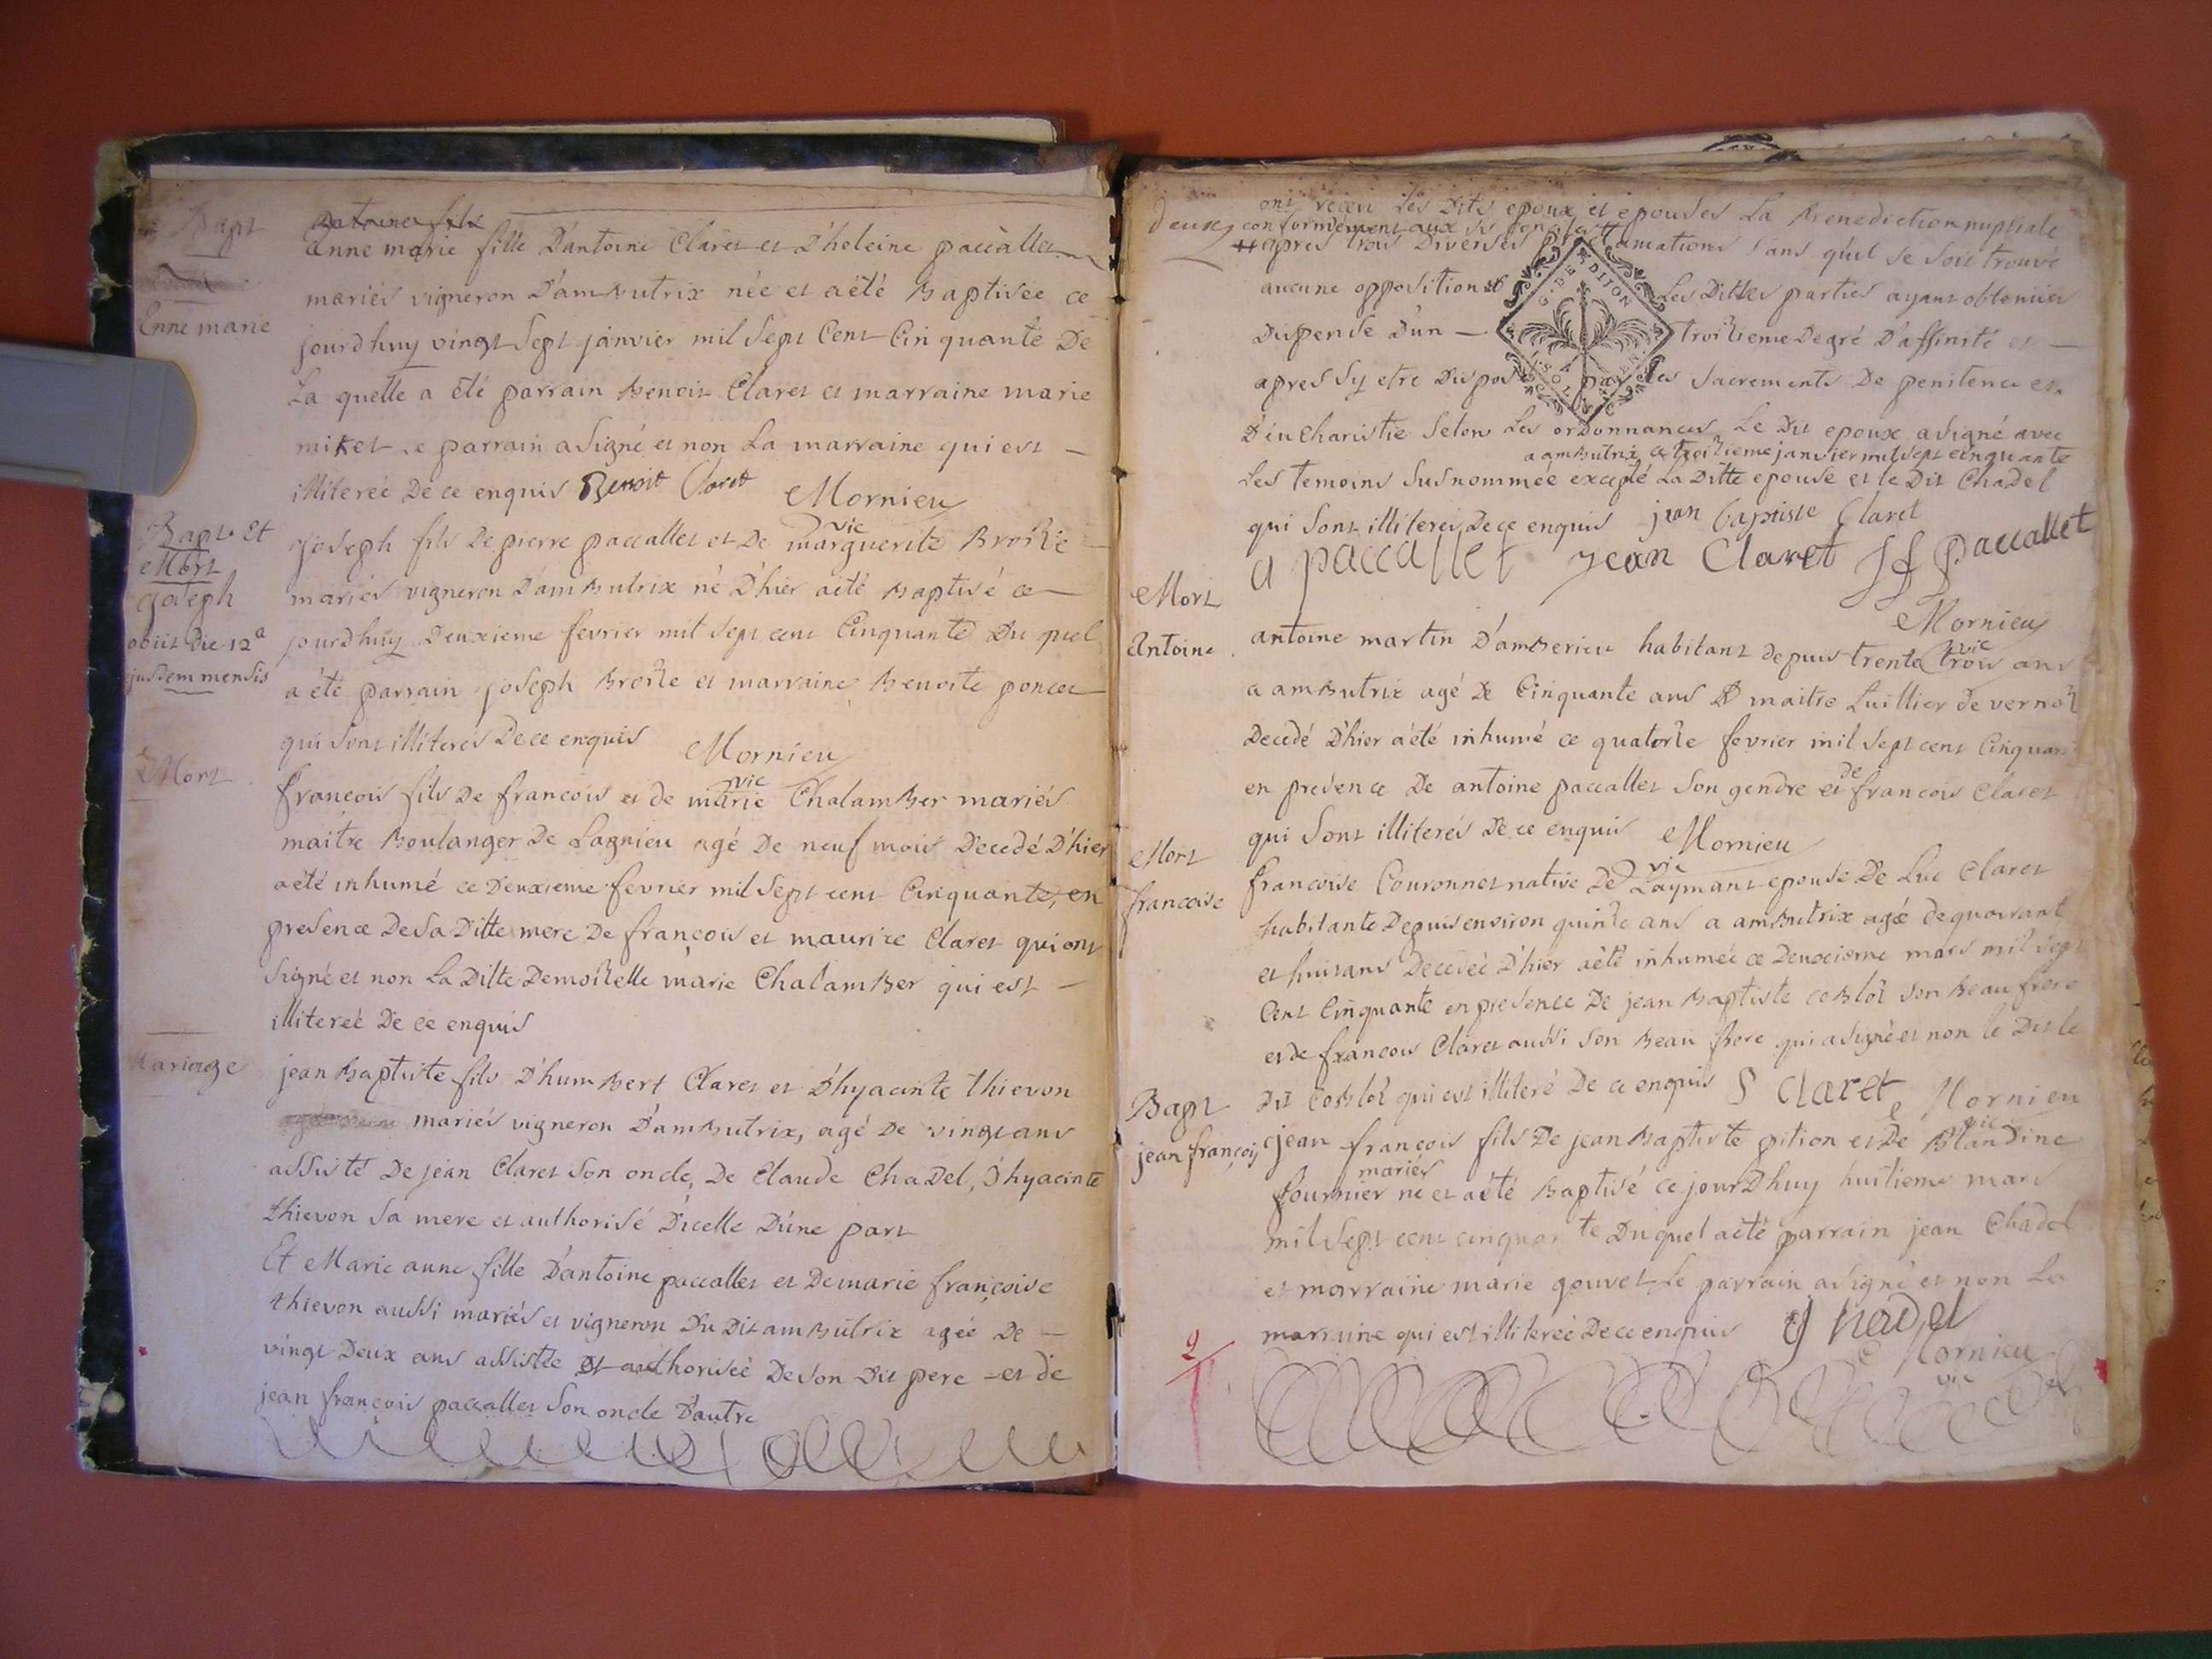 Bapt
Enne marie
Enne marie fille D'antoine Claret et D'heleine paccallet
mariés vigneron D'amButrix née et aété Baptisée ce
jourdhuy vingt Sept janvier mil Sept Cent Cinquante De
La quelle a été parrain Benoit Claret et marraine marie
miket Le parrain aSigné et non La marraine qui est
illiterée De ce enquis Benoit Claret Mornieu
vic
Bapt et
Mort
Joseph
obiit die 12a
jusdem mensis
Joseph fils De pierre paccallet et De marguerite Brosse
mariés vigneron D'amButrix né D'hier aété Baptisé ce
jourdhuy Deuxieme fevrier mil Sept cent Cinquante Du quel
a été parrain joseph et marraine Benoite poncet
qui Sont illiterés De ce enquis Mornieu
vic
Mort
francois fils De francois et de marie ChalamBer mariés
maitre Boulanger De Lagnieu agé De neuf mois Decedé D'hier
aété inhumé ce Deuxieme fevrier mil Sept cent Cinquante, en
presence De Sa Ditte mere De françois et maurice Claret qui ont
Signé et non La Ditte Demoiselle marie ChalamBer qui est
illiterée De ce enquis
Mariage
jean Baptiste fils D'humBert Claret et D'hyacinte thievon
mariés vigneron D'amButrix, agé De vingt ans
assisté De jean Claret Son oncle, De Claude ChaDel, D'hyacinte
thievon Sa mere et authorisé D'icelle D'une part
Et Marie anne fille D'antoine paccallet et De marie françoise
thievon aussi mariés et vigneron Du Dit amButrix agée De
vingt Deux ans assistée et authorisée De Son Dit pere et de
jean françois paccallet Son oncle D'autre
deux
ont reçeu Les Dits epoux et epouses La Benediction nuptiale
conformément aux
apres trois Diverses proclamations Sans qu'il se Soit trouvé
aucune opposition et Les Dittes parties ayant obtenües
G. DE DIJON
Dispense D'un troisieme Degré D'affinité et
apres Sy etre Disposé par Les Sacrements De penitence et
D'eucharistie Selon Les orDonnances Le Dit epoux aSigné avec
a amButrix ce treizieme janvier mil sept cinquante
Les temoins Susnommée excepté La Ditte epouse et le Dit Chadel
qui Sont illiterés De ce enquis jean baptiste Claret
a paccallet Jean Claret Jf paccallet
Mornieu
vic
Mort
Antoine
antoine martin D'amBerieu habitant depuis trente trois ans
a amButrix agé De Cinquante ans maitre tuillier de
Decedé D'hier aété inhumé ce quatorze fevrier mil Sept cent Cinquante
en presence De antoine paccallet Son gendre et de francois Claret
qui Sont illiterés De ce enquis Mornieu
vic
Mort
francoise
francoise Couronnet native De Laymant epouse De Luc Claret
habitante Depuis environ quinze ans a amButrix agée de quarant
et huit ans Decedée D'hier aété inhumée ce Deuxieme mars mil Sept
Cent Cinquante en presence De jean Baptiste Son Beau frere
et de francois Claret aussi Son Beau frere qui aSigné et non le Dit le
Dit qui est illiteré De ce enquis f Claret Mornieu
vic
Bapt
jean françois
jean françois fils De jean Baptiste pition et De Blandine
mariés
fournier né et aété Baptisé ce jourDhuy huitieme mars
mil Sept cent cinquante Duquel aété parrain jean Chadel
et marraine marie gouvet Le parrain aSigné et non La
marraine qui est illiterée De ce enquis J Chadel
Mornieu
vic
2